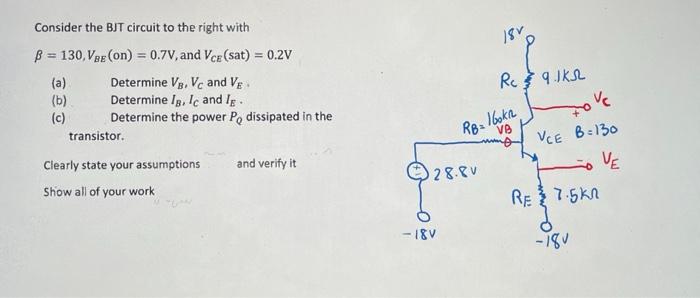 Consider the BJT circuit to the right with
β = 130, V_BE(on) = 0.7V, and V_CE(sat) = 0.2V
(a) Determine V_B, V_C and V_E.
(b) Determine I_B, I_C and I_E.
(c) Determine the power P_Q dissipated in the
transistor.
Clearly state your assumptions and verify it
Show all of your work
18V
Rc 9.1KΩ
+ Vc
RB= 160KΩ
VB
VCE B=130
VE
+ 28.8V
RE 7.5KΩ
-18V
-18V